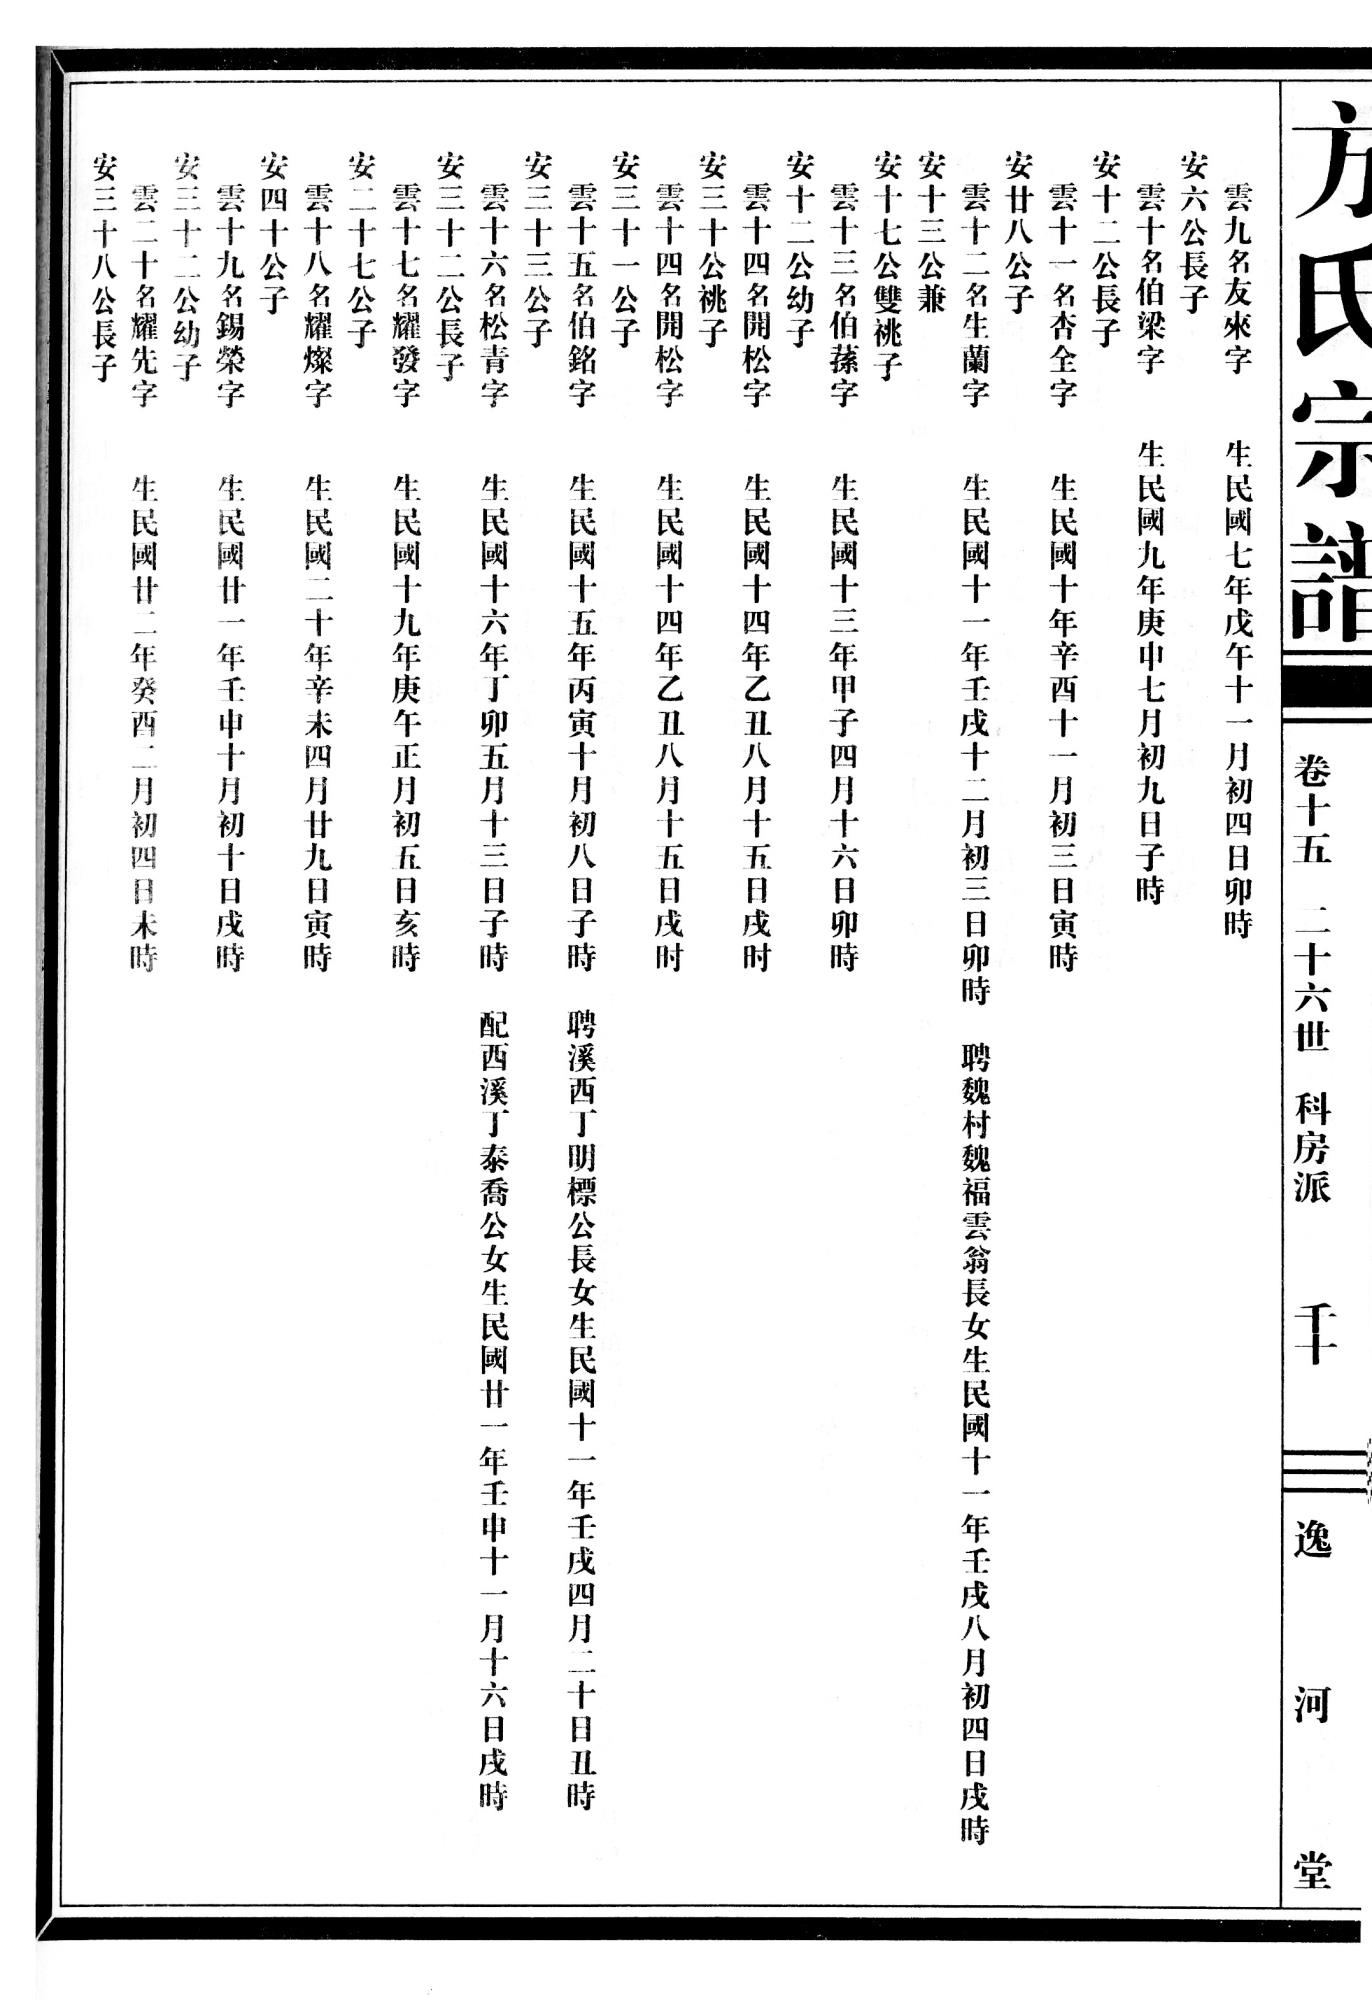 方氏宗譜
卷十五 二十六世 科房派
逸河堂
雲九名友來字 生民國七年戊午十一月初四日卯時
安六公長子
雲十名伯梁字 生民國九年庚申七月初九日子時
安十二公長子
雲十一名杏全字 生民國十年辛酉十一月初三日寅時
安廿八公子
雲十二名生蘭字 生民國十一年壬戌十二月初三日卯時 聘魏村魏福雲翁長女生民國十一年壬戌八月初四日戌時
安十三公兼
安十七公雙祧子
雲十三名伯蓀字 生民國十三年甲子四月十六日卯時
安十二公幼子
雲十四名開松字 生民國十四年乙丑八月十五日戌时
安三十公祧子
雲十四名開松字 生民國十四年乙丑八月十五日戌时
安三十一公子
雲十五名伯銘字 生民國十五年丙寅十月初八日子時 聘溪西丁明標公長女生民國十一年壬戌四月二十日丑時
安三十三公子
雲十六名松青字 生民國十六年丁卯五月十三日子時 配西溪丁泰喬公女生民國廿一年壬申十一月十六日戌時
安三十二公長子
雲十七名耀發字 生民國十九年庚午正月初五日亥時
安二十七公子
雲十八名耀燦字 生民國二十年辛未四月廿九日寅時
安四十公子
雲十九名錫榮字 生民國廿一年壬申十月初十日戌時
安三十二公幼子
雲二十名耀先字 生民國廿二年癸酉二月初四日未時
安三十八公長子